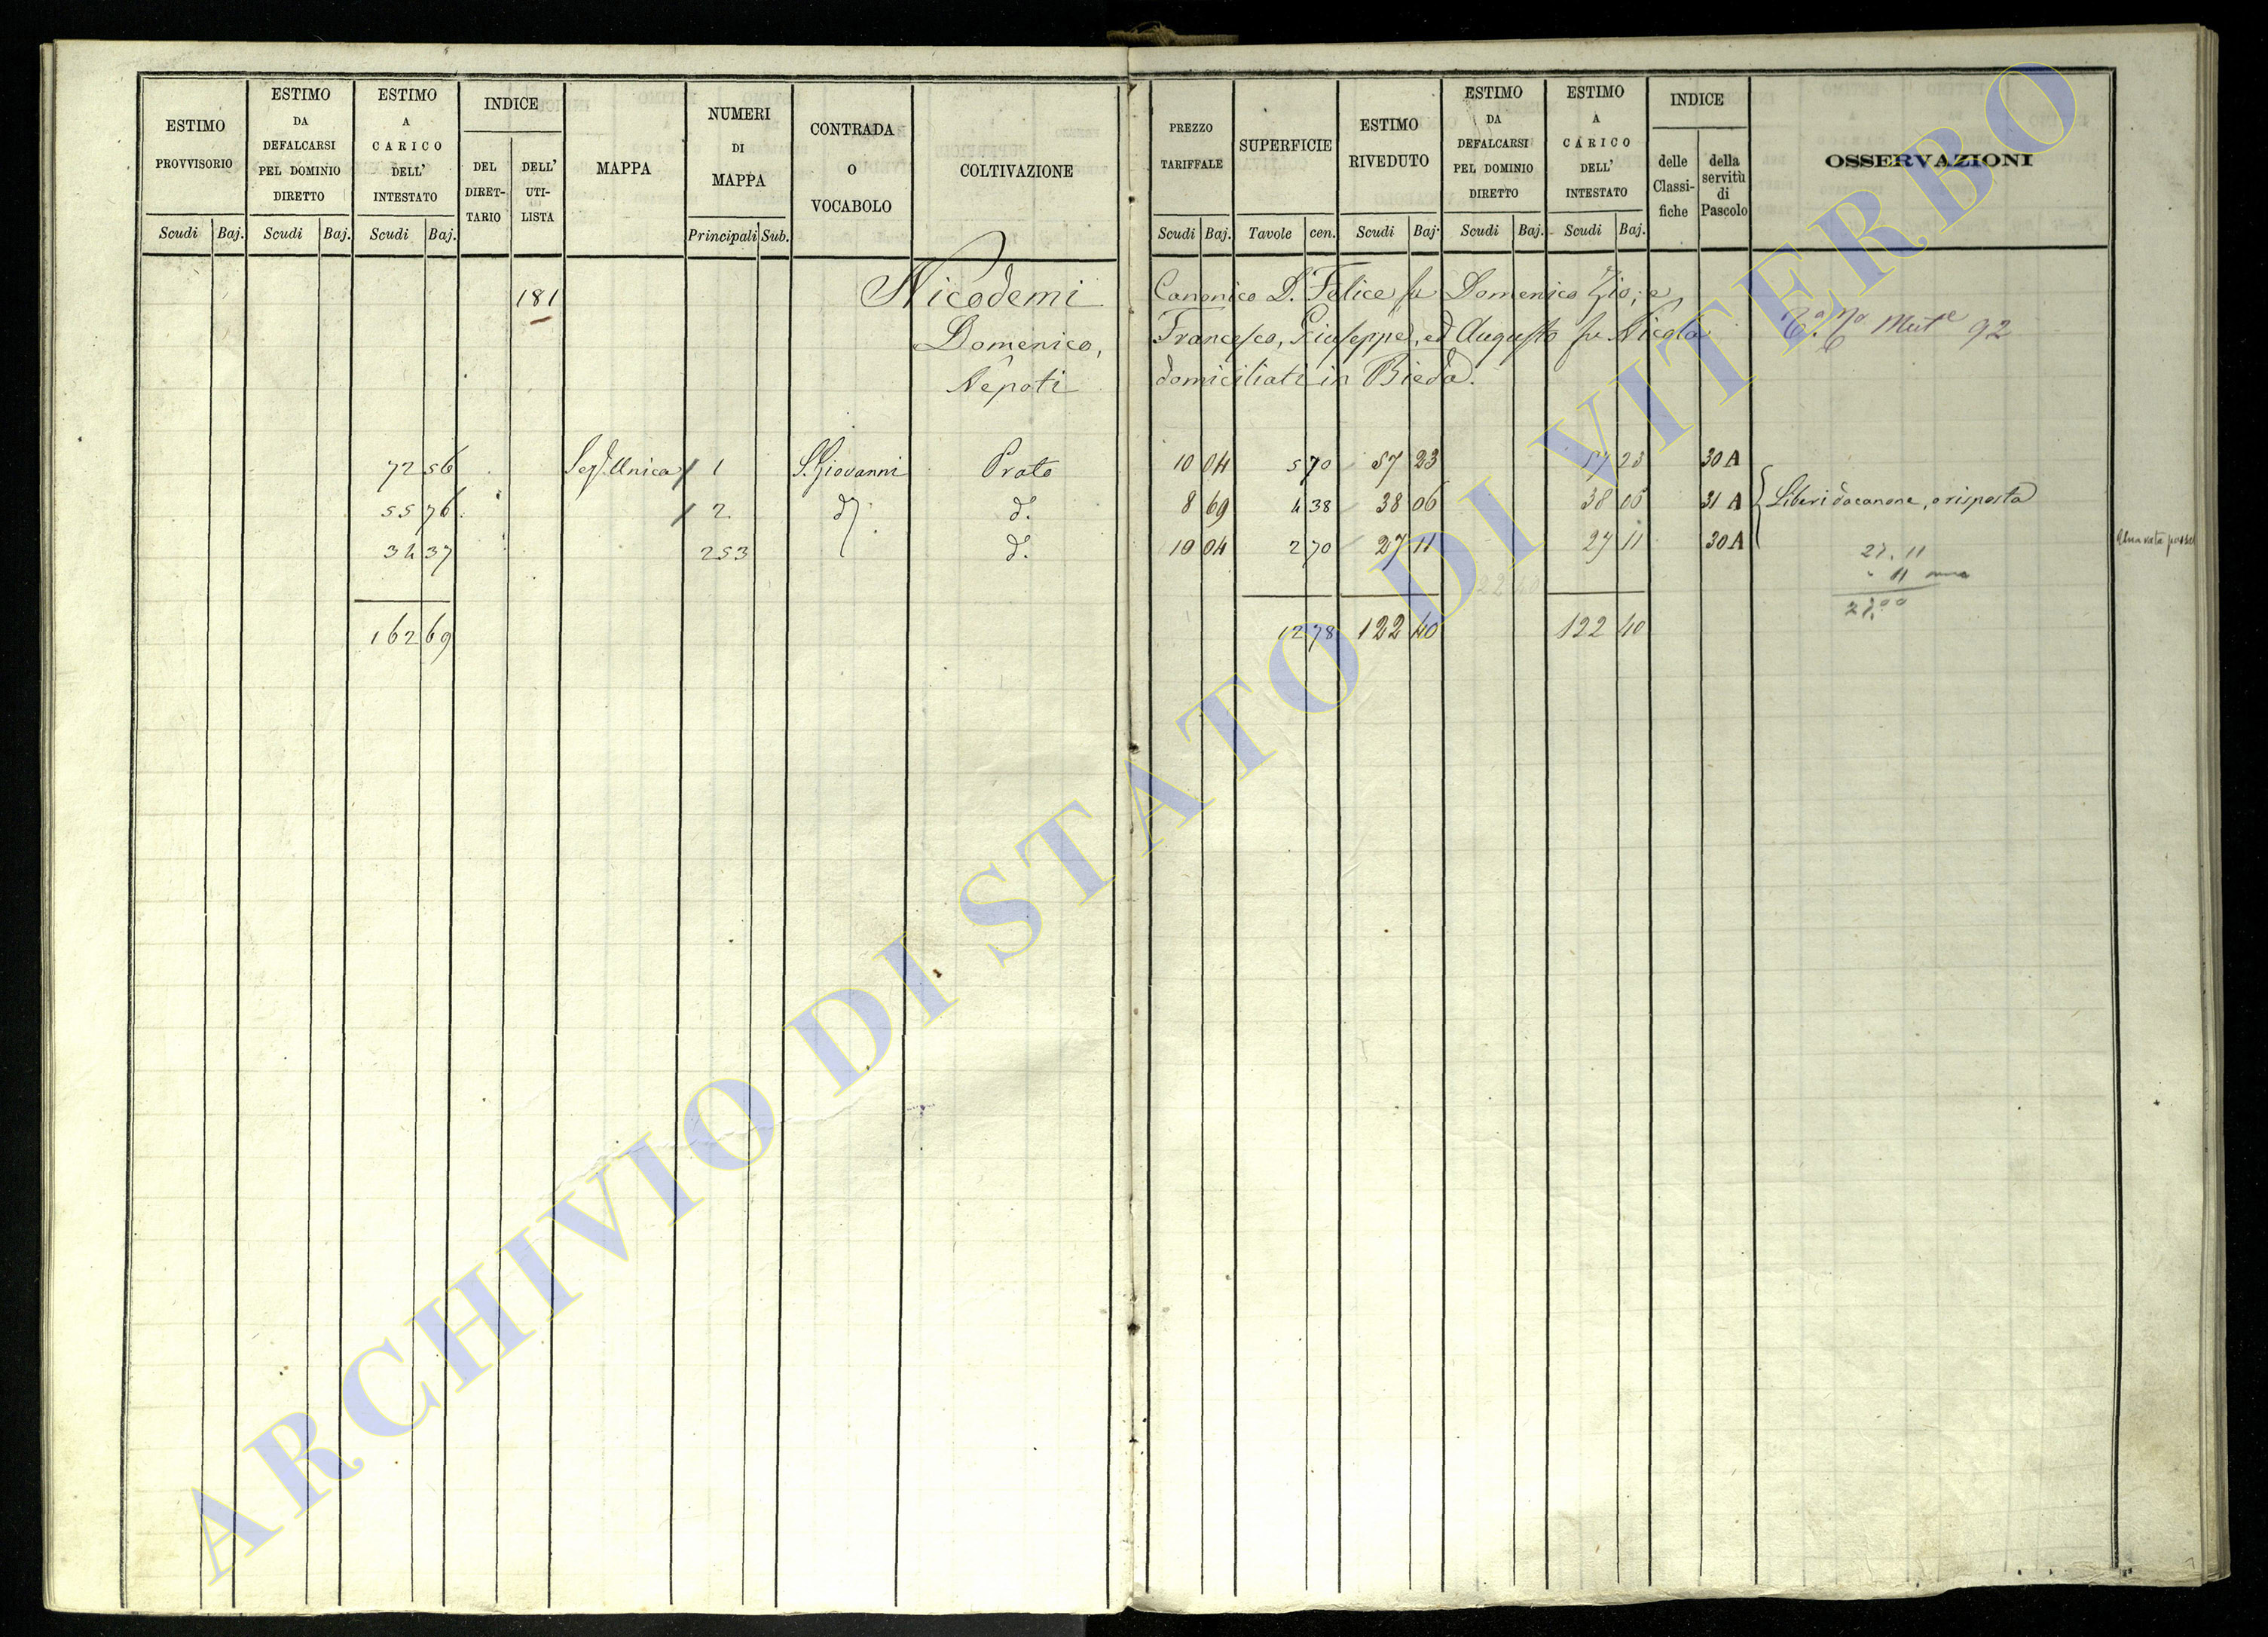 ESTIMO PROVVISORIO
ESTIMO DA DEFALCARSI PEL DOMINIO DIRETTO
ESTIMO A CARICO DELL' INTESTATO
INDICE
DEL DIRET-TARIO
DELL' UTI-LISTA
MAPPA
NUMERI DI MAPPA
CONTRADA O VOCABOLO
COLTIVAZIONE
Scudi Baj. Scudi Baj. Scudi Baj. Principali Sub.
PREZZO TARIFFALE
SUPERFICIE
ESTIMO RIVEDUTO
ESTIMO DA DEFALCARSI PEL DOMINIO DIRETTO
ESTIMO A CARICO DELL' INTESTATO
INDICE
delle Classi-fiche
della servitù di Pascolo
OSSERVAZIONI
Scudi Baj. Tavole cen. Scudi Baj. Scudi Baj. Scudi Baj.
181 Nicodemi Canonico D. Felice fu Domenico Zio, e
Domenico, Francesco, Giuseppe, ed Augusto fu Nicola 92
Nepoti domiciliati in Bieda.
72 56 Unica 1 S. Giovanni Prato 10 04 5 70 57 23 57 23 30 A
55 76 2 d. d. 8 69 4 38 38 06 38 06 31 A Liberi da canone, o risposta
34 37 253 d. 10 04 2 70 27 11 27 11 30 A
27. 11
11
27.00
162 69 12 78 122 40 122 40
ARCHIVIO DI STATO DI VITERBO